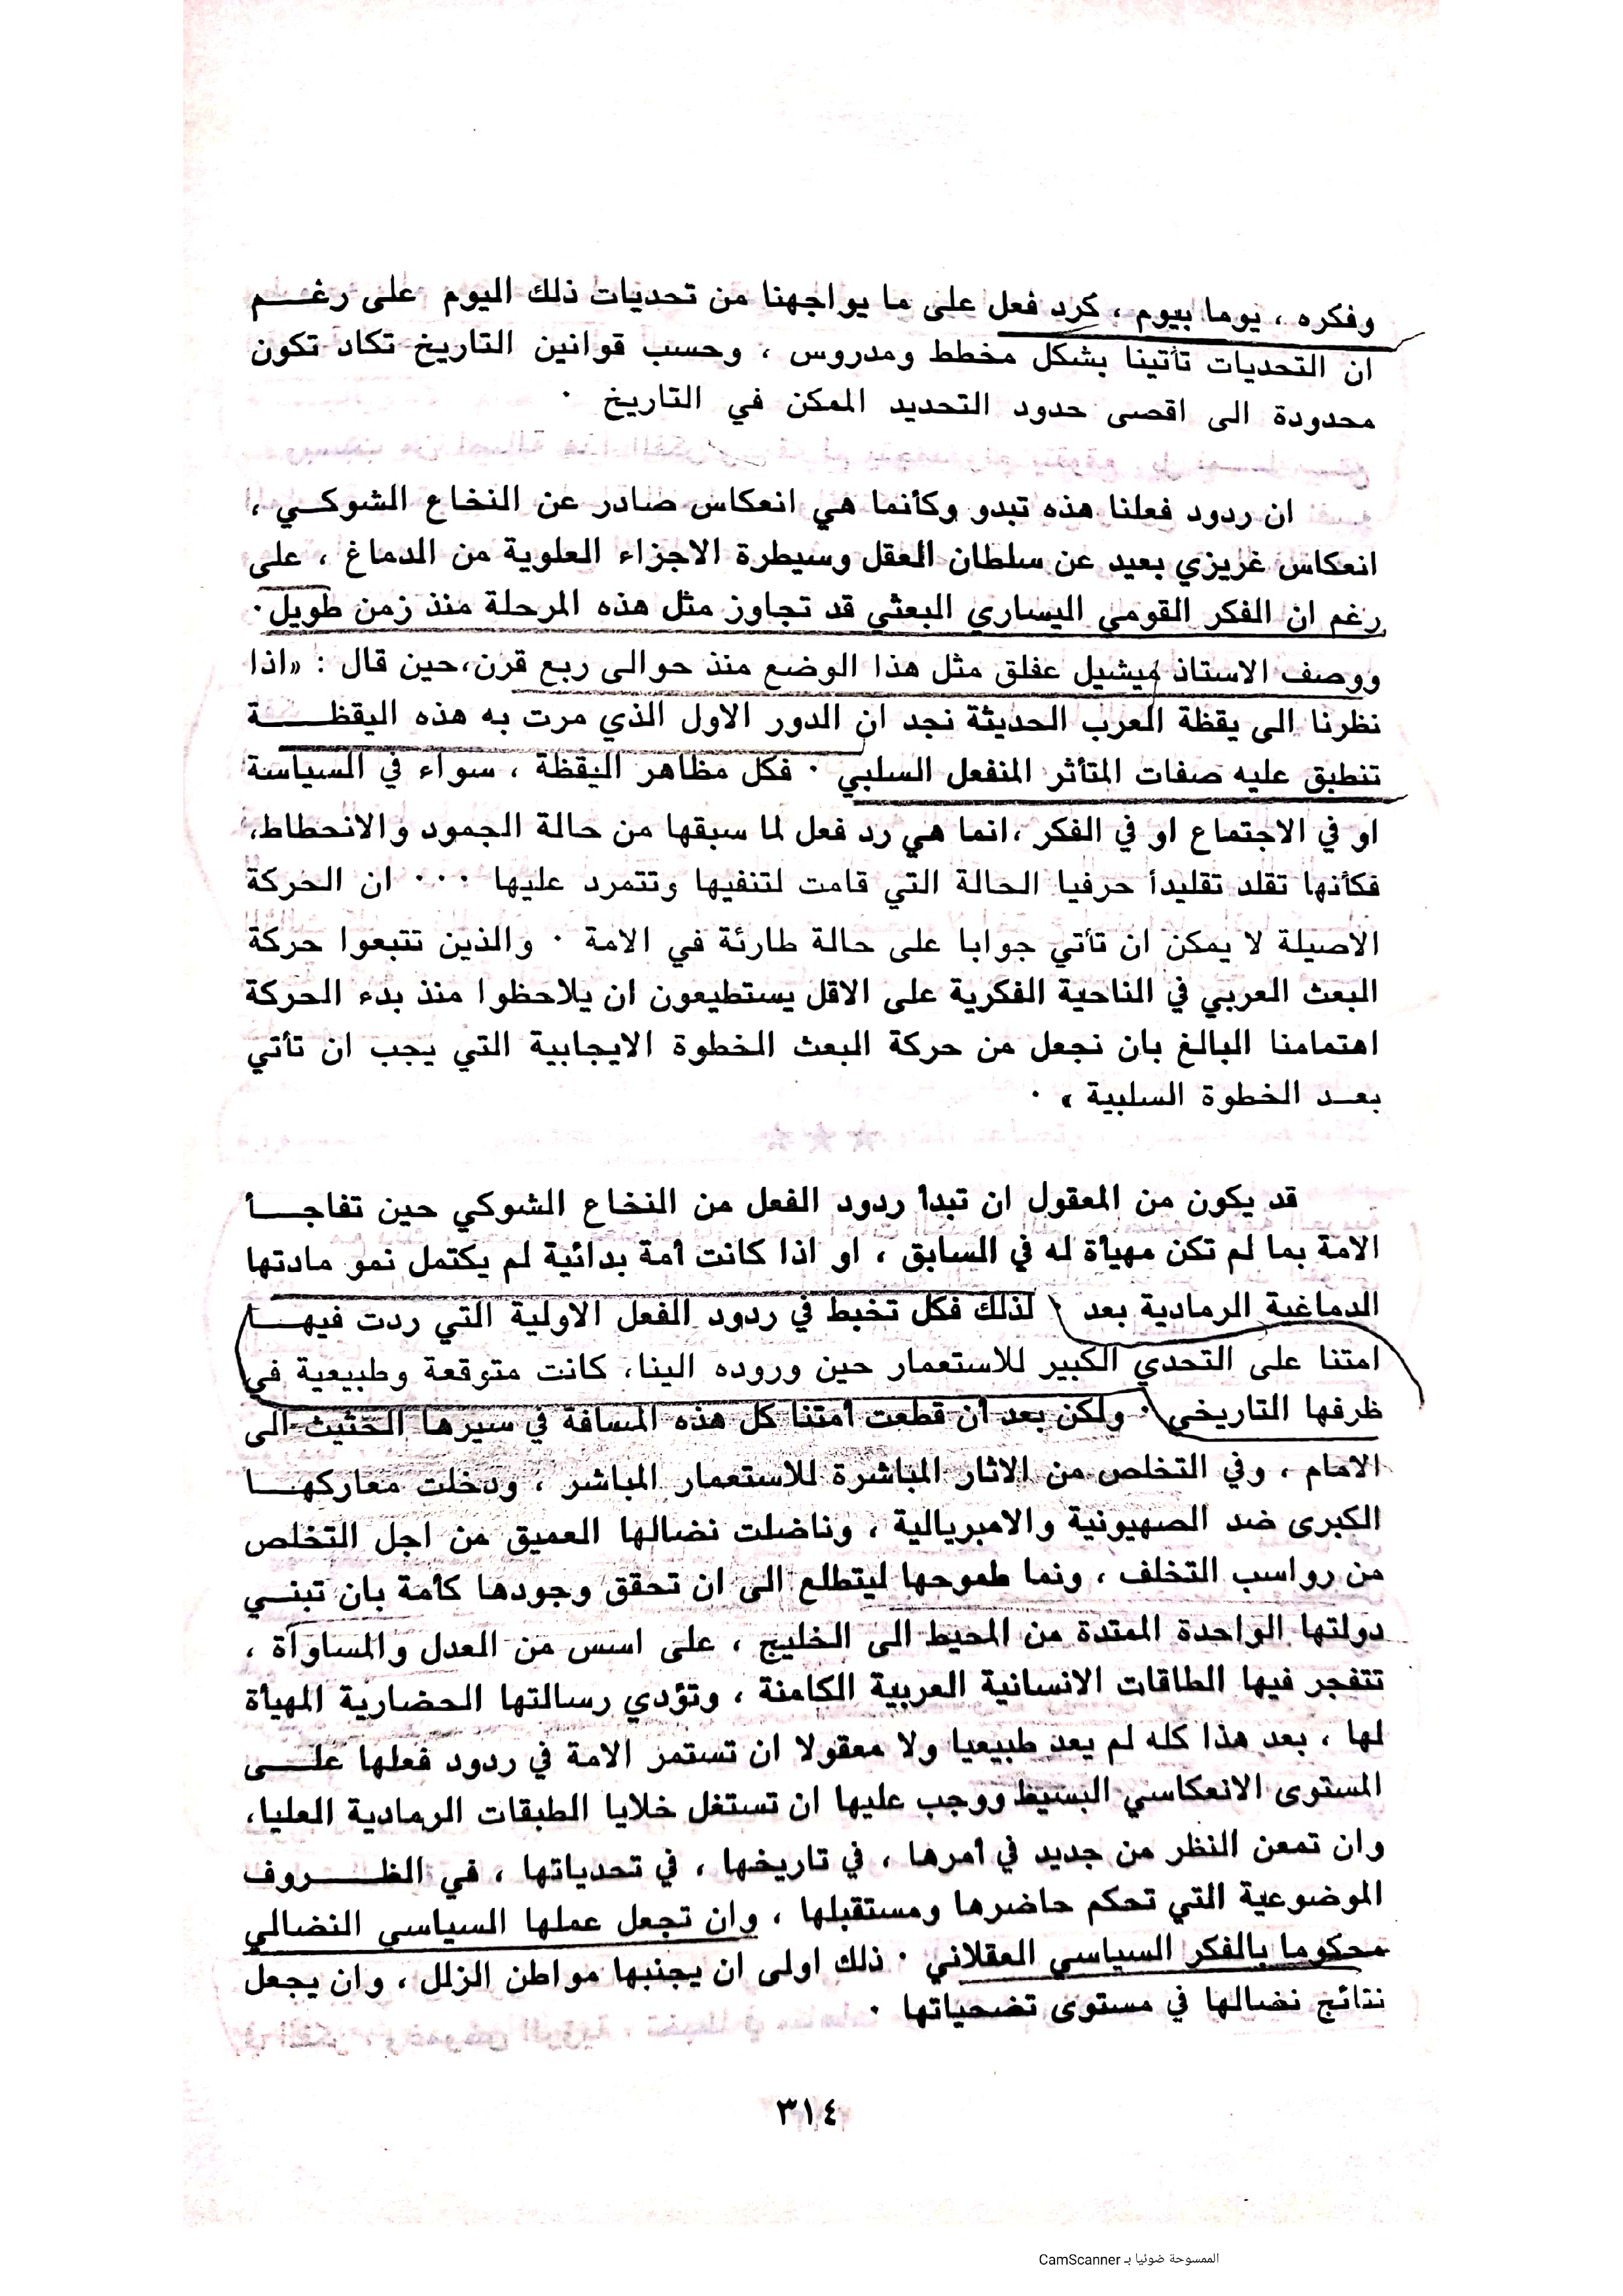 وفكره ، يوما بيوم ، كرد فعل على ما يواجهنا من تحديات ذلك اليوم على رغم
ان التحديات تأتينا بشكل مخطط ومدروس ، وحسب قوانين التاريخ تكاد تكون
محدودة الى اقصى حدود التحديد الممكن في التاريخ ٠
ان ردود فعلنا هذه تبدو وكأنما هي انعكاس صادر عن النخاع الشوكي ،
انعكاس غريزي بعيد عن سلطان العقل وسيطرة الاجزاء العلوية من الدماغ ، على
رغم ان الفكر القومي اليساري البعثي قد تجاوز مثل هذه المرحلة منذ زمن طويل٠
ووصف الاستاذ ميشيل عفلق مثل هذا الوضع منذ حوالى ربع قرن،حين قال : «اذا
نظرنا الى يقظة العرب الحديثة نجد ان الدور الاول الذي مرت به هذه اليقظة
تنطبق عليه صفات المتأثر المنفعل السلبي ٠ فكل مظاهر اليقظة ، سواء في السياسة
او في الاجتماع او في الفكر ،انما هي رد فعل لما سبقها من حالة الجمود والانحطاط،
فكأنها تقلد تقليدأ حرفيا الحالة التي قامت لتنفيها وتتمرد عليها ٠٠٠ ان الحركة
الاصيلة لا يمكن ان تأتي جوابا على حالة طارئة في الامة ٠ والذين تتبعوا حركة
البعث العربي في الناحية الفكرية على الاقل يستطيعون ان يلاحظوا منذ بدء الحركة
اهتمامنا البالغ بان نجعل من حركة البعث الخطوة الايجابية التي يجب ان تأتي
بعد الخطوة السلبية » ٠
قد يكون من المعقول ان تبدأ ردود الفعل من النخاع الشوكي حين تفاجأ
الامة بما لم تكن مهيأة له في السابق ، او اذا كانت أمة بدائية لم يكتمل نمو مادتها
الدماغية الرمادية بعد ٠ لذلك فكل تخبط في ردود الفعل الاولية التي ردت فيها
امتنا على التحدي الكبير للاستعمار حين وروده الينا، كانت متوقعة وطبيعية في
ظرفها التاريخي ٠ ولكن بعد أن قطعت أمتنا كل هذه المسافة في سيرها الحثيث الى
الامام ، وفي التخلص من الاثار المباشرة للاستعمار المباشر ، ودخلت معاركها
الكبرى ضد الصهيونية والامبريالية ، وناضلت نضالها العميق من اجل التخلص
من رواسب التخلف ، ونما طموحها ليتطلع الى ان تحقق وجودها كأمة بان تبني
دولتها الواحدة الممتدة من المحيط الى الخليج ، على اسس من العدل والمساوأة ،
تتفجر فيها الطاقات الانسانية العربية الكامنة ، وتؤدي رسالتها الحضارية المهيأة
لها ، بعد هذا كله لم يعد طبيعيا ولا معقولا ان تستمر الامة في ردود فعلها على
المستوى الانعكاسي البسيط ووجب عليها ان تستغل خلايا الطبقات الرمادية العليا،
وان تمعن النظر من جديد في أمرها ، في تاريخها ، في تحدياتها ، في الظروف
الموضوعية التي تحكم حاضرها ومستقبلها ، وان تجعل عملها السياسي النضالي
محكوما بالفكر السياسي العقلاني ٠ ذلك اولى ان يجنبها مواطن الزلل ، وان يجعل
نتائج نضالها في مستوى تضحياتها ٠
٣١٤
الممسوحة ضوئيا بـ CamScanner